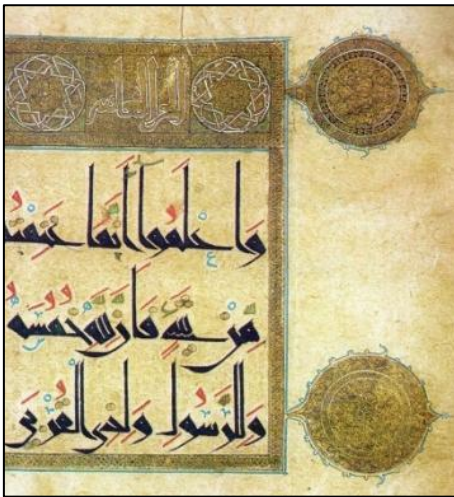 الجزء العاشر
وَاعْلَمُوا أَنَّمَا غَنِمْتُم
مِنْ شَيْءٍ فَأَنَّ لِلَّهِ خُمُسَهُ
وَلِلرَّسُولِ وَلِذِي الْقُرْبَى